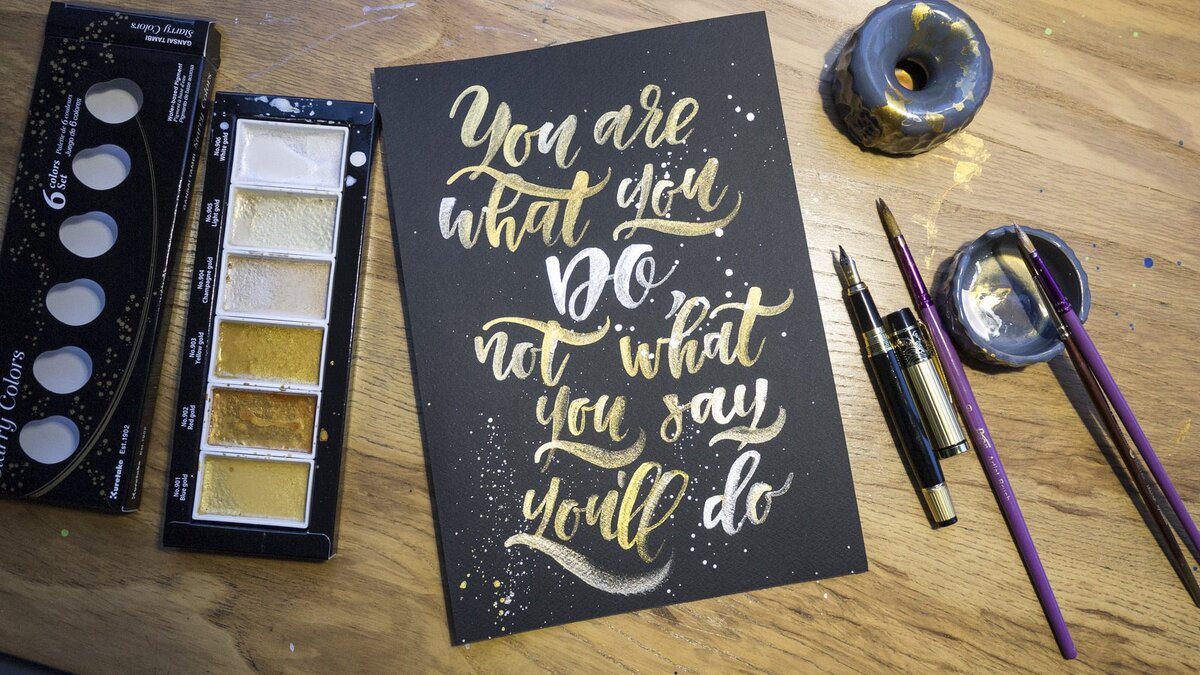 GANSAI TAMBI
Starry Colors
6 colors
Set
Palette de 6 couleurs
Juego de 6 colores
Water-based Pigment
Starry Colors
Kuretake Est.1902
No.906
White gold
No.905
Light gold
No.904
Champagne gold
No.903
Yellow gold
No.902
Red gold
No.901
Blue gold
You are
what you
DO,
not what
you say
you'll do